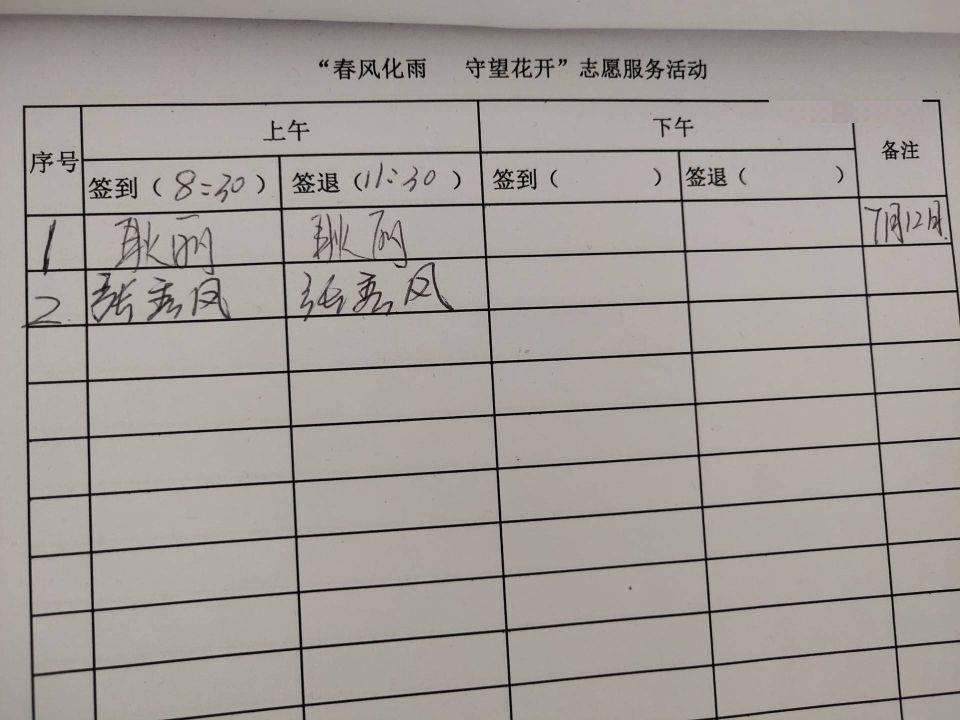 “春风化雨 守望花开”志愿服务活动
序号 上午 下午 备注
签到（8:30） 签退（11:30） 签到（ ） 签退（ ）
1 耿丽 耿丽 7月12日
2 张秀凤 张秀凤